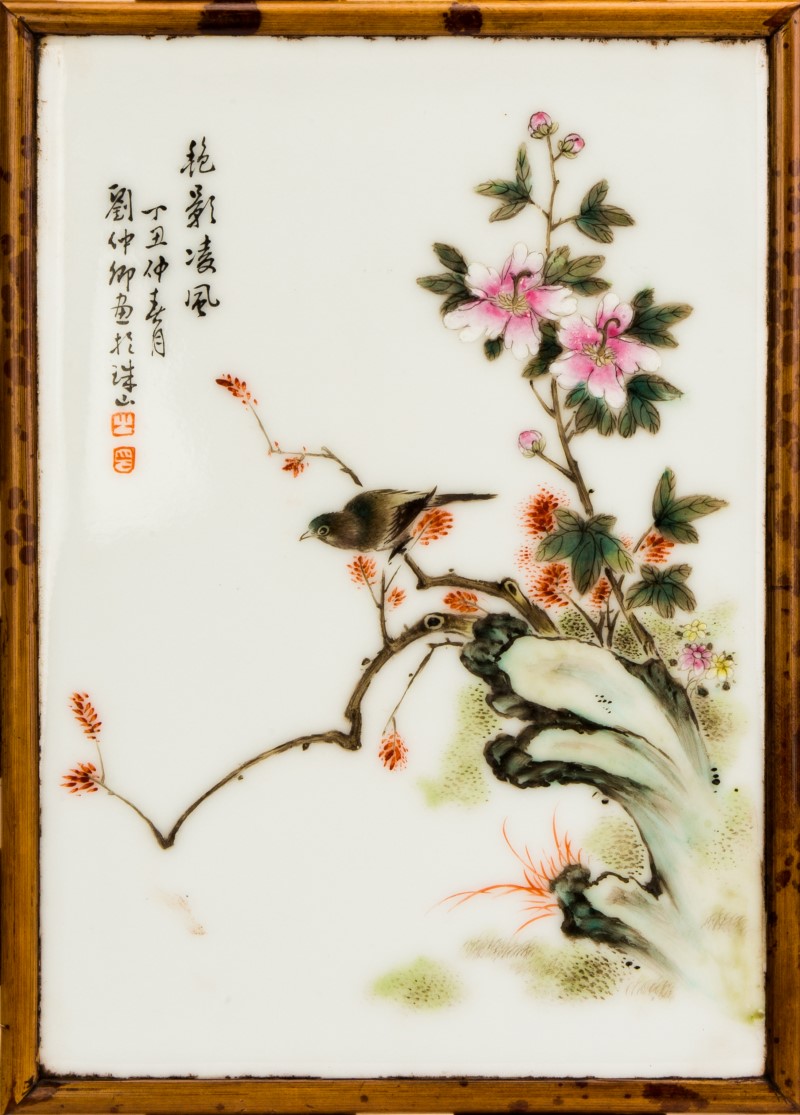 艷影凌風
丁丑仲春月
劉仲卿画於珠山